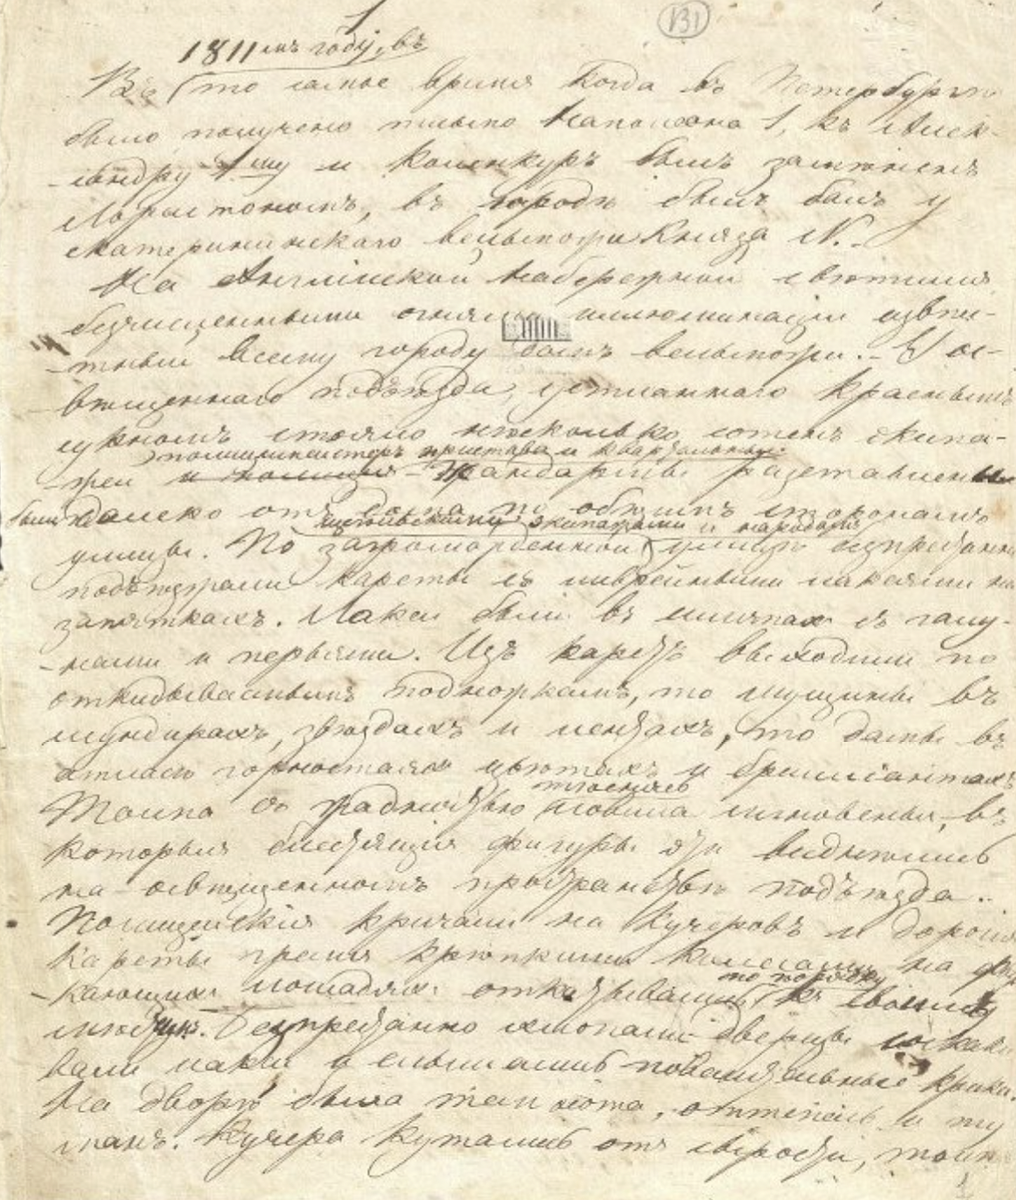 1
131
1811мъ году, въ
Въ то самое время когда въ Петербургѣ
было получено письмо Наполеона I, къ Алек-
сандру 1му и Коленкуръ былъ замѣненъ
Лористономъ, въ городѣ былъ балъ у
екатерининскаго вельможи Князя N.-
На Англійской набережной свѣтился
безчисленными огнями иллюминаціи извѣ-
стный всему городу балъ вельможи.- У ос-
вѣщеннаго подъѣзда, устланнаго краснымъ
сукномъ стояло нѣсколько сотенъ экипа-
полицмейстеръ, пристава и квартальные
жей и полиція Жандармы разставлены
были далеко отъ дома по обѣимъ сторонамъ
экипажами и народомъ
улицы. По загроможденной улицѣ безпрестанно
подъѣзжали кареты съ ливрейными лакеями на
запяткахъ. Лакеи были въ шляпахъ съ галу-
нами и перьями. Изъ каретъ выходили по
откидываемымъ подножкамъ, то мущины въ
мундирахъ, звѣздахъ и лентахъ, то дамы въ
атласѣ горностаяхъ цвѣтахъ и брилліантахъ
тѣснясь
Толпа съ жадностью ловила мгновенья, въ
которыя блестящія фигуры эти виднѣлись
на освѣщенномъ пространствѣ подъѣзда..
Полицейскія кричали на кучеровъ и дорогія
кареты гремя крѣпкими колесами на фыр-
по порядку
кающихъ лошадяхъ откатывались къ своимъ
мѣстамъ. Безпрестанно хлопали дверцы соскаки-
вали лакеи и слышались повелительные крики.
На дворѣ была темнота, оттепель и ту-
манъ. Кучера кутались отъ сырости,